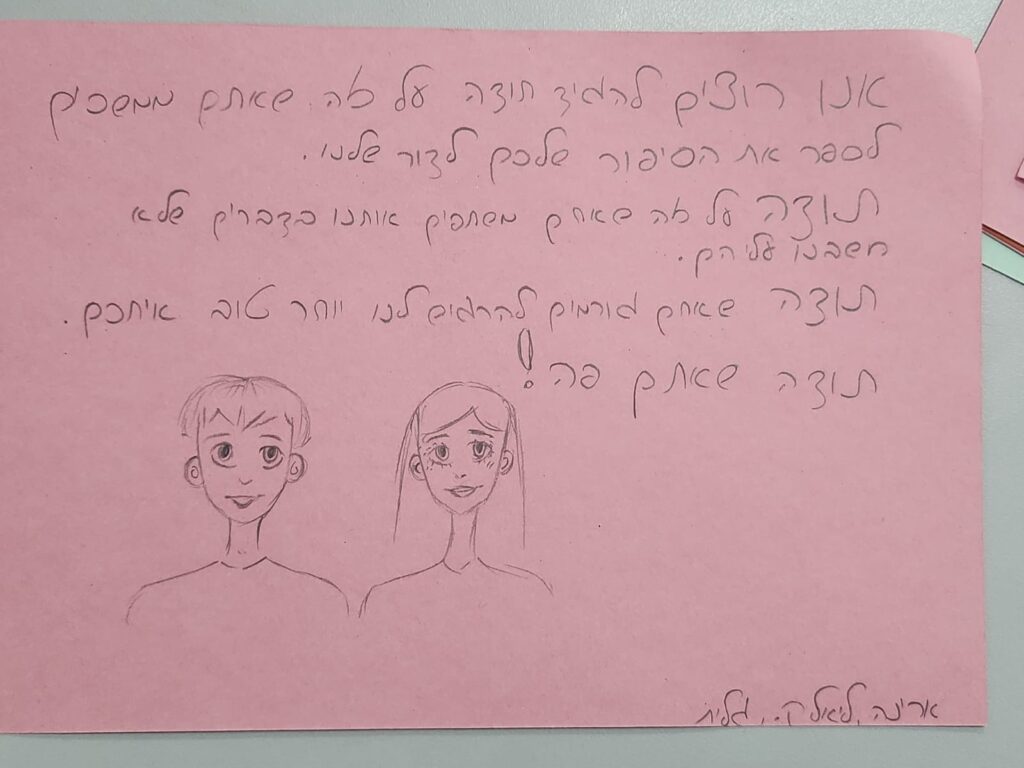 אנו רוצים להגיד תודה על זה שאתם ממשכים
לספר את הסיפור שלכם לדור שלנו.
תודה על זה שאתם משתפים אותנו בדברים שלא
חשבנו עליהם.
תודה שאתם גורמים להרגיש לנו יותר טוב איתכם.
תודה שאתם פה!
אורינה, ליאל ק., גלית